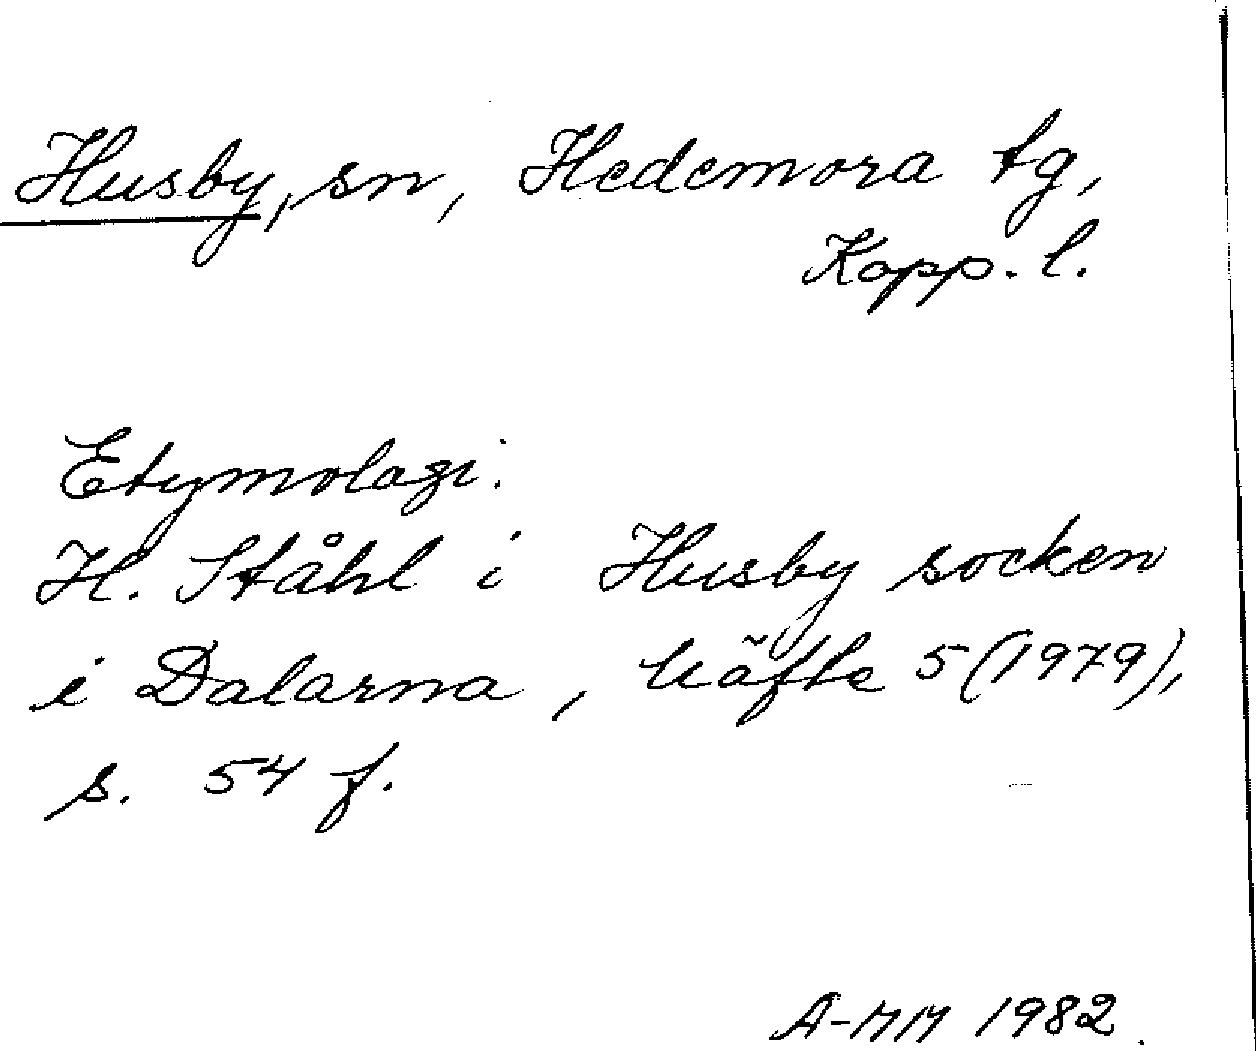 Husby, sn, Hedemora tg,
Kopp. l.
Etymologi.
H. Ståhl i Husby socken
i Dalarna, häfte 5 (1979),
s. 54 f.
A-MM 1982